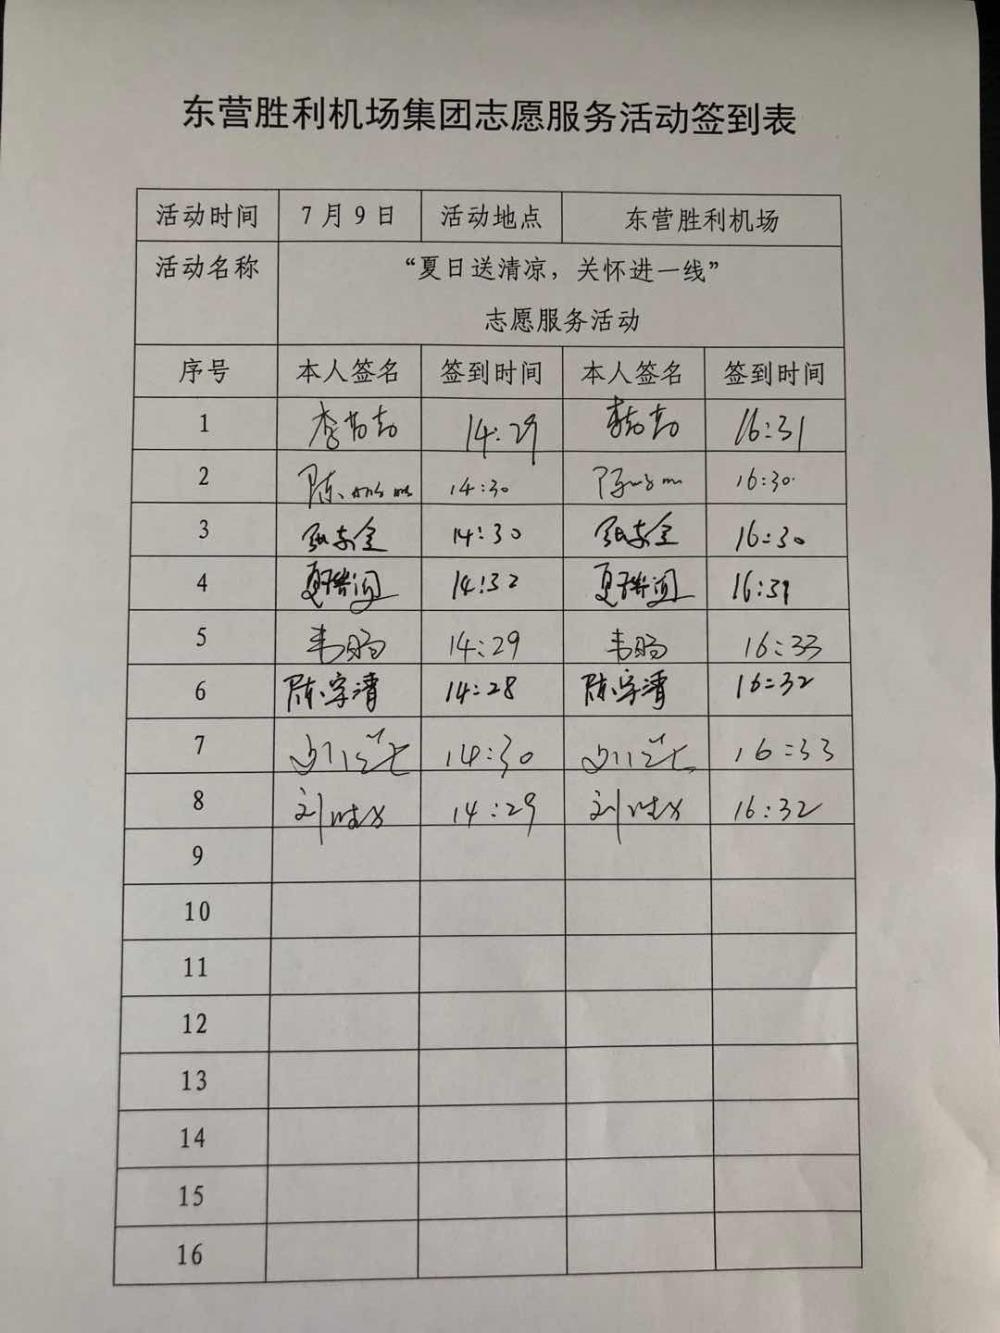 东营胜利机场集团志愿服务活动签到表
活动时间 7月9日 活动地点 东营胜利机场
活动名称 “夏日送清凉，关怀进一线”
志愿服务活动
序号 本人签名 签到时间 本人签名 签到时间
1 李 14:29 16:31
2 陈 14:30 16:30
3 14:30 16:30
4 夏 14:32 夏 16:31
5 韦 14:29 韦 16:33
6 陈字清 14:28 陈字清 16:32
7 14:30 16:33
8 刘 14:29 刘 16:32
9
10
11
12
13
14
15
16